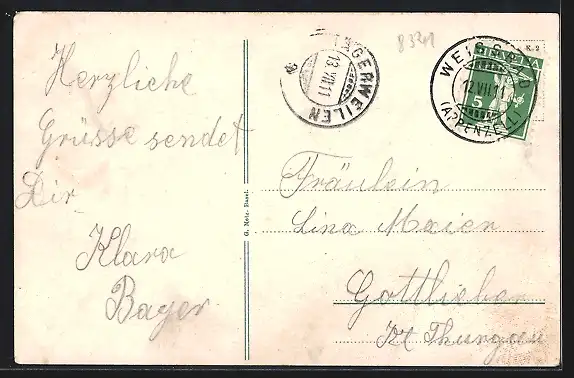 Herzliche
Grüsse sendet
Dir
Klara
Bayer
G. Metz, Basel.
GERWEILEN
13.VII.11
8321
K. 2
WEISS D
12.VII.11
(APPENZELL)
5
Fräulein
Lina Maier
Gottlieben
Kt Thurgau